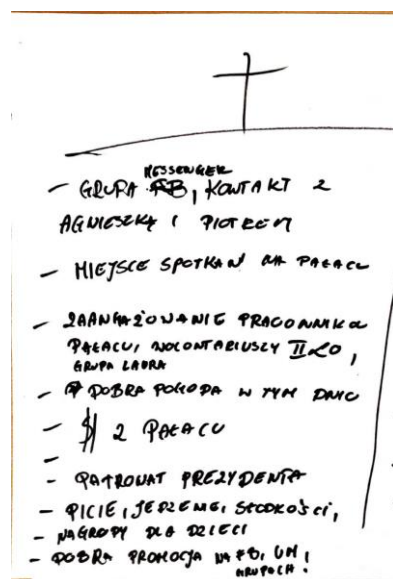 MESSENGER
- GRUPA FB, KONTAKT Z
AGNIESZKĄ I PIOTREM
- MIEJSCE SPOTKAŃ NA PAŁACU
- ZAANGAŻOWANIE PRACOWNIKÓW
PAŁACU, WOLONTARIUSZY II LO,
GRUPA LAURA
- DOBRA POGODA W TYM DNIU
- $ Z PAŁACU
-
- PATRONAT PREZYDENTA
- PICIE, JEDZENIE, SŁODKOŚCI,
- NAGRODY DLA DZIECI
- DOBRA PROMOCJA NA FB, UM,
GRUPACH.